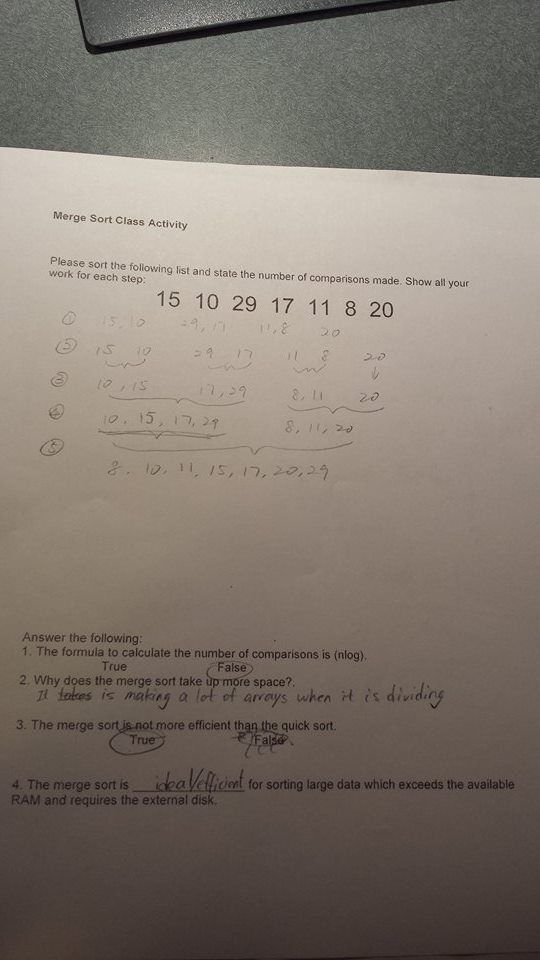 Merge Sort Class Activity
Please sort the following list and state the number of comparisons made. Show all your
work for each step:
15 10 29 17 11 8 20
① 15, 10 29, 17 11, 8 20
② 15 10 29 17 11 8 20
③ 10, 15 17, 29 8, 11 20
④ 10, 15, 17, 29 8, 11, 20
⑤
8, 10, 11, 15, 17, 20, 29
Answer the following:
1. The formula to calculate the number of comparisons is (nlog).
True False
2. Why does the merge sort take up more space?.
It takes is making a lot of arrays when it is dividing
3. The merge sort is not more efficient than the quick sort.
True False
4. The merge sort is ideal/efficient for sorting large data which exceeds the available
RAM and requires the external disk.